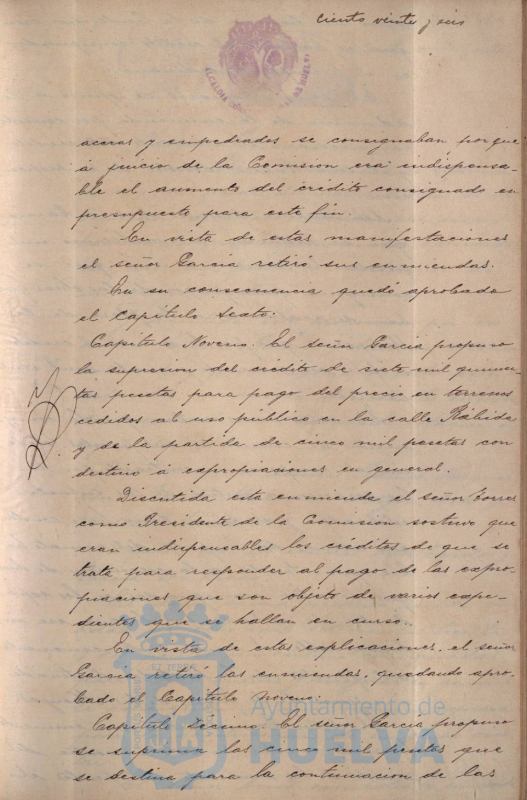 Ciento veinte y seis
ALCALDIA DE HUELVA
aceras y empedrados se consignaban porque
á juicio de la Comision era indispensa-
ble el aumento del crédito consignado en
presupuesto para este fin.
En vista de estas manifestaciones
el señor Garcia retiró sus enmiendas.
En su consecuencia quedó aprobado
el Capítulo Sexto.
Capítulo Noveno. El señor Garcia propuso
la supresion del crédito de siete mil quinien-
tas pesetas para pago del precio en terrenos
cedidos al uso público en la calle Rábida
y de la partida de cinco mil pesetas con
destino á expropiaciones en general.
Discutida esta enmienda el señor Torres
como Presidente de la Comision sostuvo que
eran indispensables los créditos de que se
trata para responder al pago de las expro-
piaciones que son objeto de varios expe-
dientes que se hallan en curso.
En vista de estas explicaciones, el señor
Garcia retiró las enmiendas, quedando apro-
bado el Capítulo noveno.
Capítulo Décimo. El señor Garcia propuso
se suprima las cinco mil pesetas que
se destina para la continuacion de las
Ayuntamiento de
HUELVA